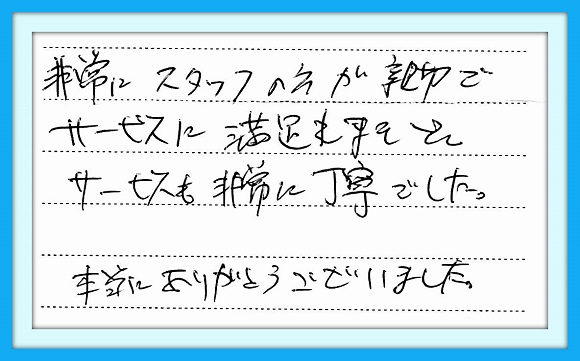 非常に スタッフの方が 親切で
サービスに 満足
サービスも 非常に 丁寧でした。
本当に ありがとうございました。